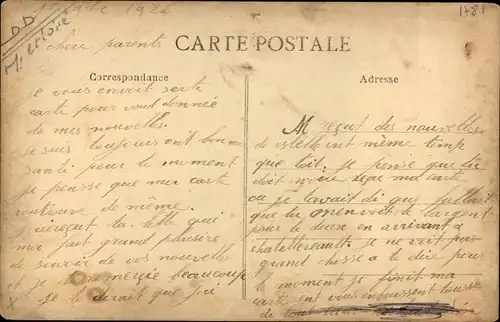 1781
DD
1922
cher parents
CARTE POSTALE
Correspondance
Je vous envoit sexte
carte pour vout donnée
de mes nouvelles.
je suis toujours ent bonne
santé pour le moment
je pensse que ma carte
voutrouve de même.
j'ai reçut la lettre qui
ma fait grand plaisire
de savoir de vos nouvelle
et je te remercie beaucoup
je te dirait que j'ai
Adresse
reçut des nouvelles
de estelle ent même temp
que toit. je pense que tu
doit avoir reçu ma carte
ou je tavait di que fallait
que tu m'envoit de l'argent
pour le deux en arrivant a
chatellereault. je ne voit pas
grand chosse a te dire pour
le moment je finit ma
carte ent vous enbrassent tousse
de tout